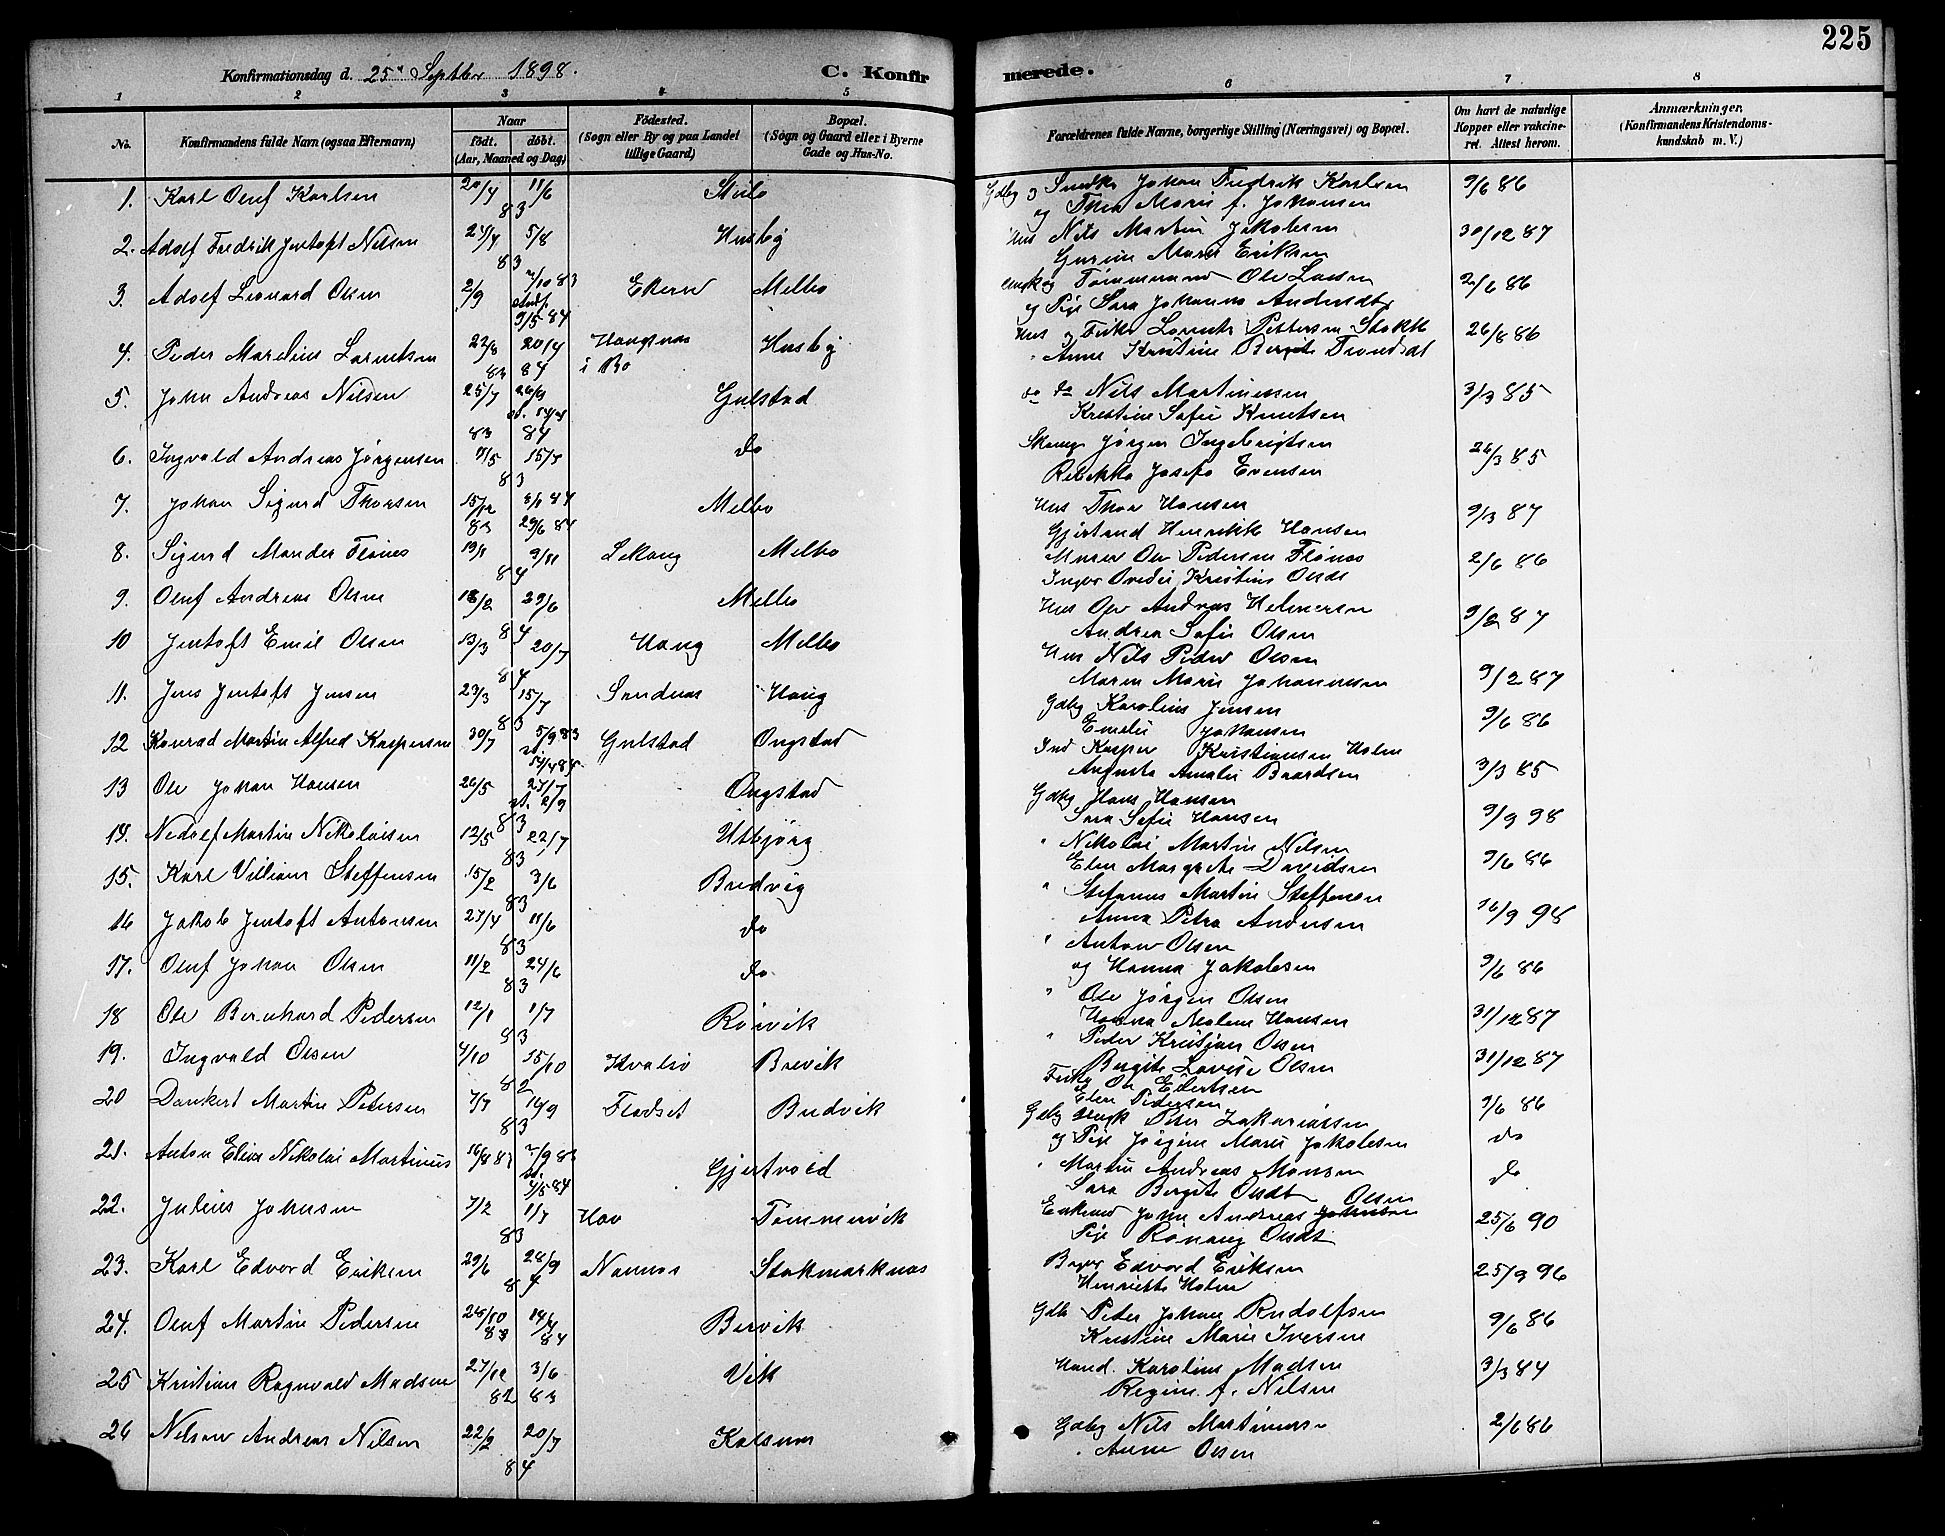 225
Konfirmationsdag d. 25de Septbr 1898. C. Konfirmerede.
1 2 3 4 5 6 7 8
No. Konfirmandens fulde Navn (ogsaa Efternavn) Naar født. døbt. (Aar, Maaned og Dag) Fødested. (Sogn eller By og paa Landet tillige Gaard.) Bopæl. (Sogn og Gaard eller i Byerne Gade og Hus-No. Forældrenes fulde Navne, borgerlige Stilling (Næringsvei) og Bopæl. Om havt de naturlige Kopper eller vakcineret. Attest herom. Anmærkninger. (Konfirmandens Kristendomskundskab m. V.)
1. Karl Oluf Karlsen 20/4 11/6 83 Johan Fredrik Karlsen 9/6 86
og Thea Marie f. Johansen
2. Adolf Fredrik Jentoft Nilsen 27/4 5/8 83 Husby Hus Nils Martin Jakobsen 30/12 87
Marie Eriksen
3. Adolf Leonard Olsen 2/9 Melbo Tømmermand Ole Larsen 2/6 86
og Pige Sara Johanna
4. Peder Marelius Lorentsen 22/8 83 20/4 84 Haugnes i Bø Husby Hus Lorents Pettersen Stokk 26/8 86
Anne Kristine Bergite
5. John Andreas Nilsen 25/7 83 26/9 84 Gulstad do do Nils Martinussen 3/3 85
Kristine Sofie Knutsen
6. Ingvald Andreas Jørgensen 15/7 83 do Jørgen Ingebrigtsen 26/3 85
Rebekka Josefa Evensen
7. Johan Sigurd Thorsen 15/12 83 29/6 84 Melbo Hus Thor Hansen 9/3 87
Gjertrud Henrikke Hansen
8. Sigurd Mander Flønes 19/1 9/11 84 Sekang Melbo Murer Ole Pedersen Flønes 2/6 86
Kristine Olsdt
9. Oluf Andreas Olsen 18/2 29/6 84 Melbo Hus Ole Andreas Helmersen 9/2 87
Andrea Sofie Olsen
10 Jentoft Emil Olsen 13/3 20/7 84 Haug Melbo Hus Nils Peder Olsen
Maren Marie Johannesen 9/2 87
11. Jens Jentoft Jensen 23/3 15/7 83 Sandnes Haug Gdbg Karolius Jensen 9/6 86
Emelie Johansen
12 Konrad Martin Alfred Kaspersen 30/7 5/9 83 Gulstad Ongstad Ind Kasper Kristiansen Holm
Augusta Amalie Baardsen 3/3 85
13 Ole Johan Hansen 26/5 27/7 st. 2/9 83 Ongstad Gdbg Hans Hansen
Sara Sofie Hansen 9/9 98
14. Nedolf Martin Nikolaisen 12/5 22/7 83 Utbjørg " Nikolai Martin Nilsen
Elen Margrete Davidsen 9/6 86
15. Karl Villiam Steffensen 15/2 3/6 83 Budvig " Stefanus Martin Steffensen
Anna Petra Andersen 16/9 98
16 Jakob Jentoft Antonsen 27/4 11/6 83 do " Anton Olsen
og Hanna Jakobsen 9/6 86
17. Oluf Johan Olsen 11/2 24/6 83 do " Ole Jørgen Olsen
Hanna Malene Hansen 31/12 87
18 Ole Bernhard Pedersen 12/1 1/7 83 Rørvik " Peder Kristian Olsen
Bergite Lovise Olsen 31/12 87
19. Ingvald Olsen 4/10 15/10 82 Kvalsø Brevik Ole Edertsen
Elen Pedersen 9/6 86
20 Dankert Martin Petersen 7/7 16/9 83 Fladset Budvik Gdbg Peter Zakariassen do
og Pige Jørgine Marie Jakobsen
21. Anton Elias Nikolai Martinus 16/8 83 2/9 83 4/5 84 Gjertvold " Martin Andreas Monsen do
Sara Bergite Olsdt
22. Julius Johnsen 7/2 1/7 83 Hov Tømmervik Enkemd John Andreas Johnsen Olsen 25/6 90
Pige Rønnaug Olsdt
23. Karl Edvard Eriksen 29/6 28/9 84 Nannes Stokmarknes Edvard Eriksen 25/9 96
Henriette Holm
24. Oluf Martin Pedersen 28/10 83 14/4 84 Bervik Gdb Peter Johan Rudolfsen 9/6 86
Kristine Marie Iversen
25 Kristian Ragnvald Madsen 27/12 82 3/6 83 Vik Hand. Karolius Madsen 3/3 84
Regine f. Nilsen
26 Nilsen Andreas Nilsen 22/2 20/7 84 Kalsnes Gdbg Nils Martinussen 2/6 86
Anne Olsen